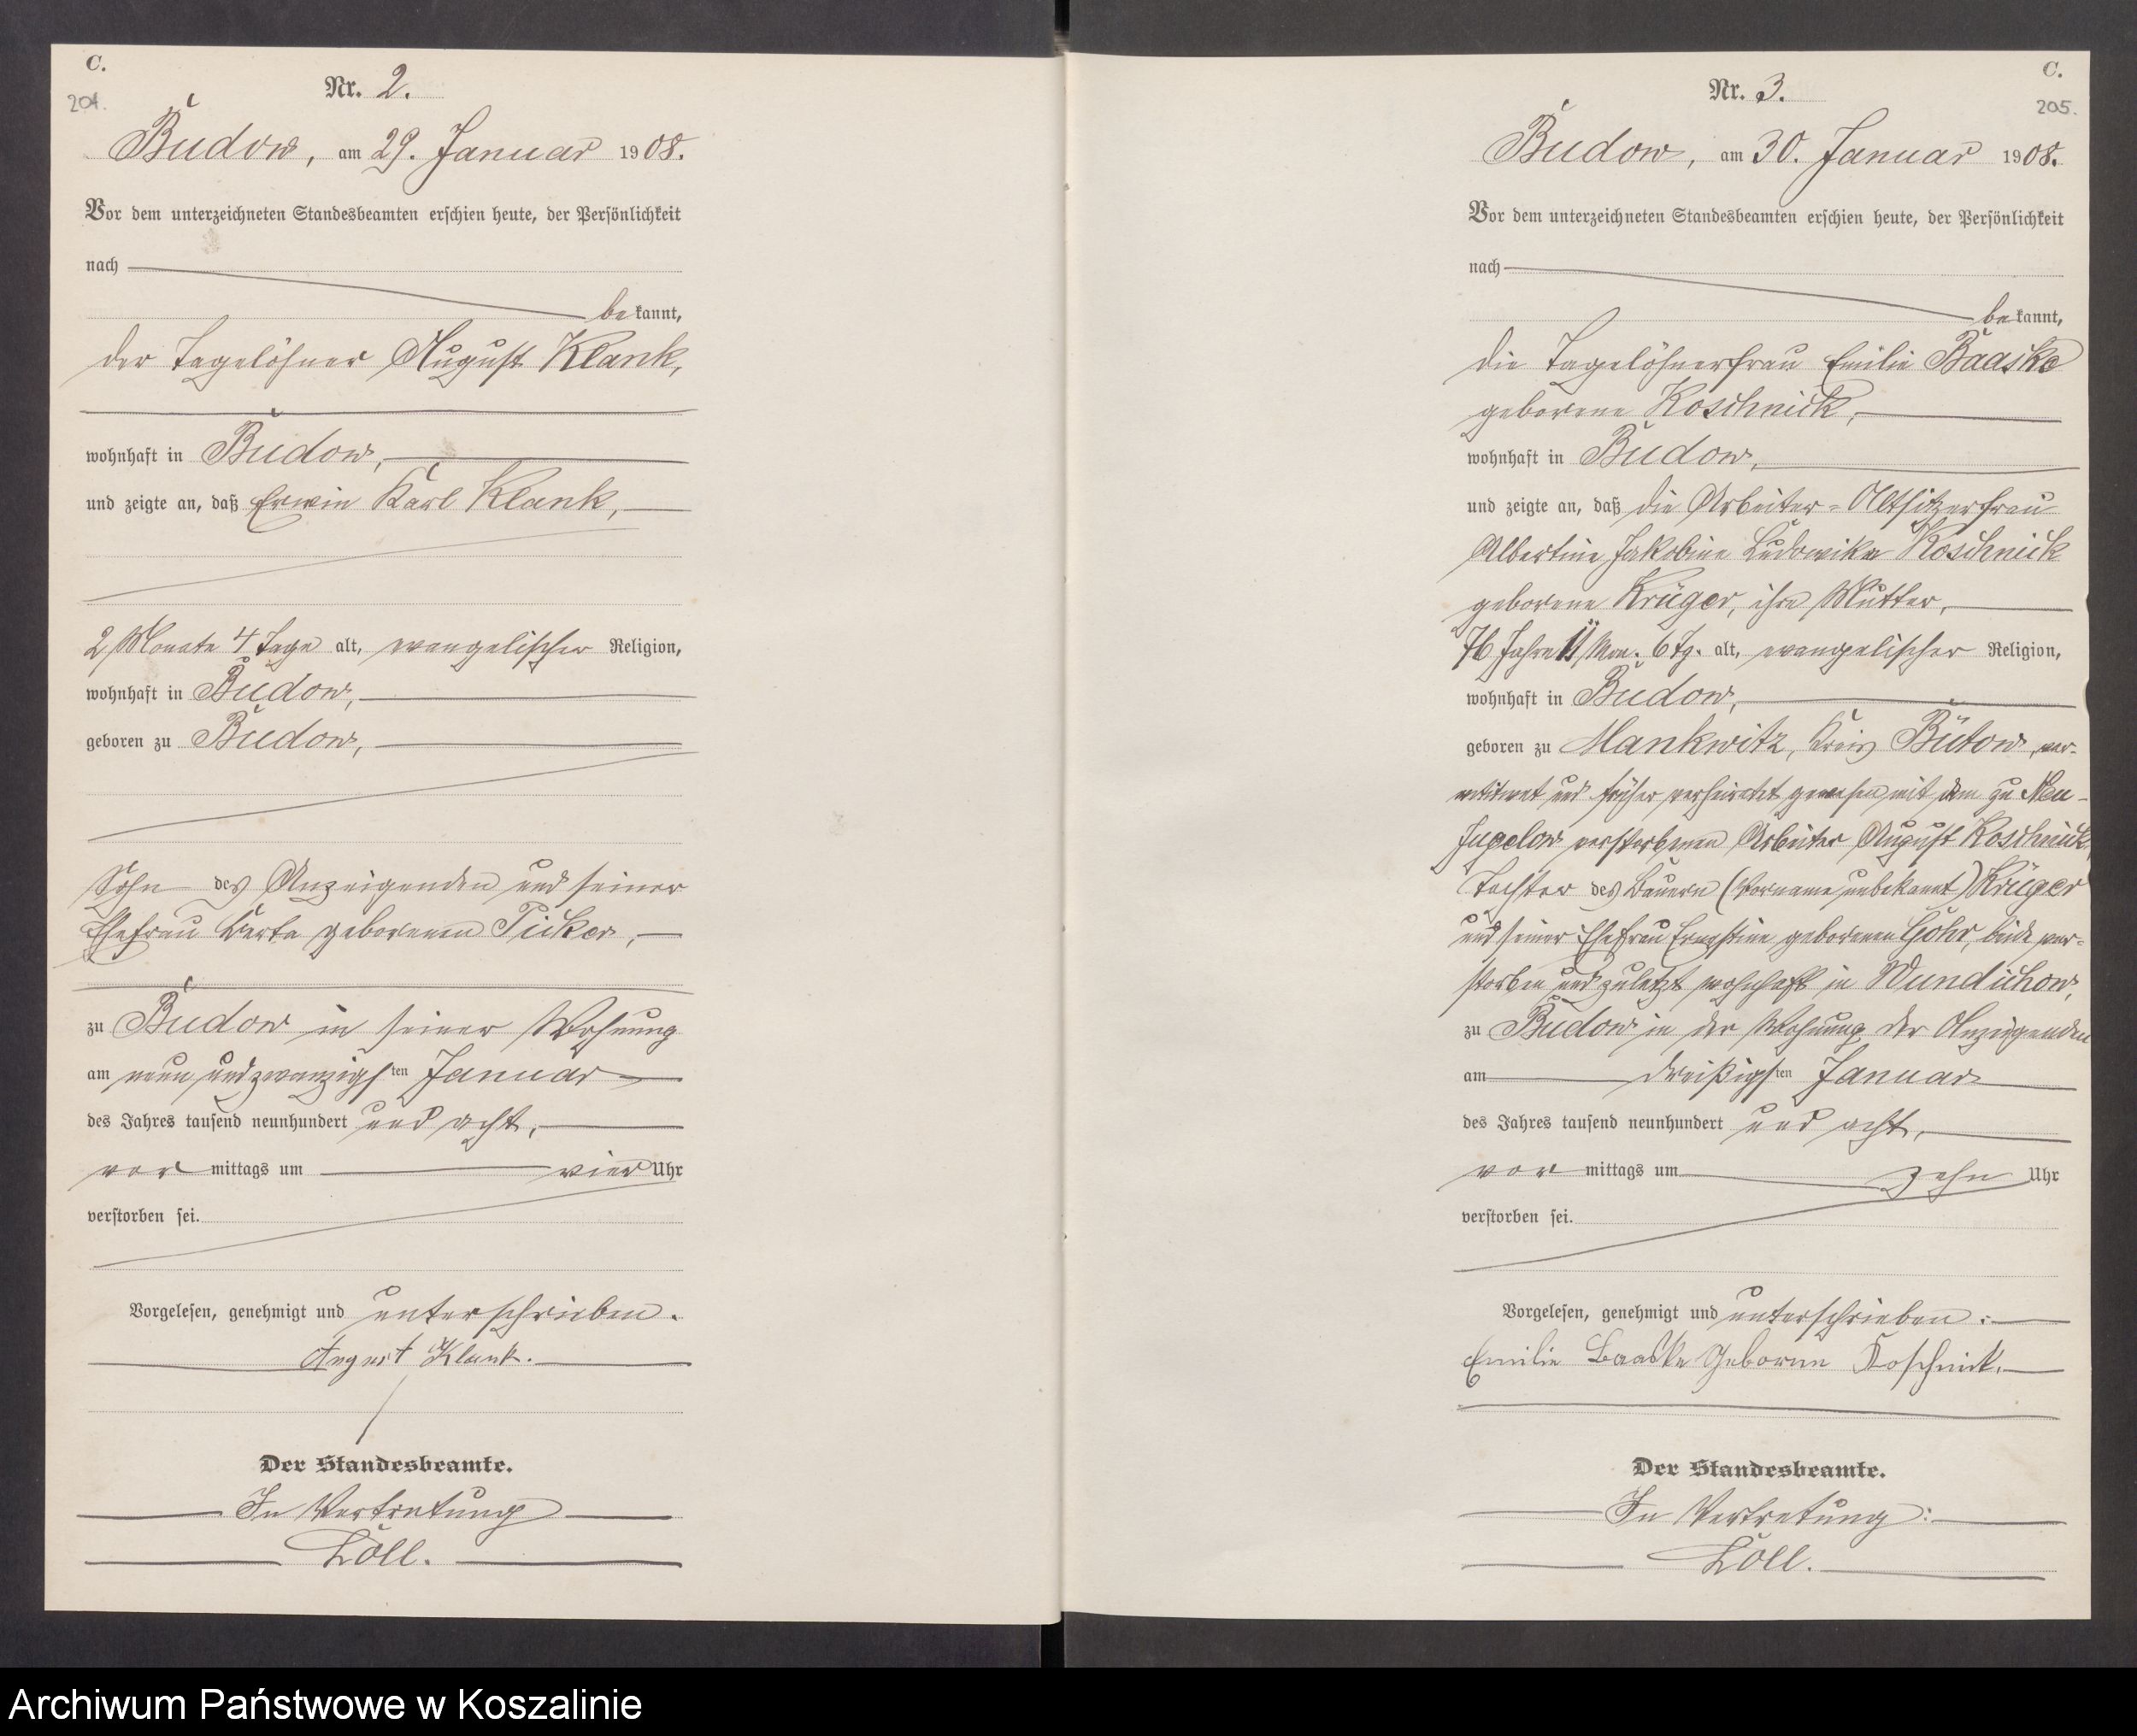 C.
204.
Nr. 2.
Budow, am 29. Januar 1908.
Vor dem unterzeichneten Standesbeamten erschien heute, der Persönlichkeit
nach
bekannt,
der Tagelöhner August Klank,
wohnhaft in Budow,
und zeigte an, daß Erwin Karl Klank,
2 Monate 4 Tage alt, evangelischer Religion,
wohnhaft in Budow,
geboren zu Budow,
Sohn des Anzeigenden und seiner
Ehefrau Berta geborenen Picker,
zu Budow in seiner Wohnung
am neun und zwanzigsten Januar
des Jahres tausend neunhundert und acht,
vor mittags um vier Uhr
verstorben sei.
Vorgelesen, genehmigt und unterschrieben.
August Klank.
Der Standesbeamte.
In Vertretung
Löll.
C.
205.
Nr. 3.
Budow, am 30. Januar 1908.
Vor dem unterzeichneten Standesbeamten erschien heute, der Persönlichkeit
nach
bekannt,
die Tagelöhnerfrau Emilie Baaske
geborene Koschnick,
wohnhaft in Budow,
und zeigte an, daß die Arbeiter-Altsitzerfrau
Albertine Jakobine Ludowika Koschnick
geborene Krüger, ihre Mutter,
76 Jahre 11 Mon. 6 Tg. alt, evangelischer Religion,
wohnhaft in Budow,
geboren zu Mankwitz, Kreis Bütow, ver-
wittwet und früher verheiratet gewesen mit dem zu Neu-
Jugelow verstorbenen Arbeiter August Koschnick,
Tochter des Bauern (Vorname unbekannt) Krüger
und seiner Ehefrau Ernestine geborenen Göhr, beide ver-
storben und zuletzt wohnhaft in Wundichow,
zu Budow in der Wohnung der Anzeigenden
am dreißigsten Januar
des Jahres tausend neunhundert und acht,
vor mittags um zehn Uhr
verstorben sei.
Vorgelesen, genehmigt und unterschrieben:
Emilie Baaske Geborene Koschnick.
Der Standesbeamte.
In Vertretung:
Löll.
Archiwum Państwowe w Koszalinie